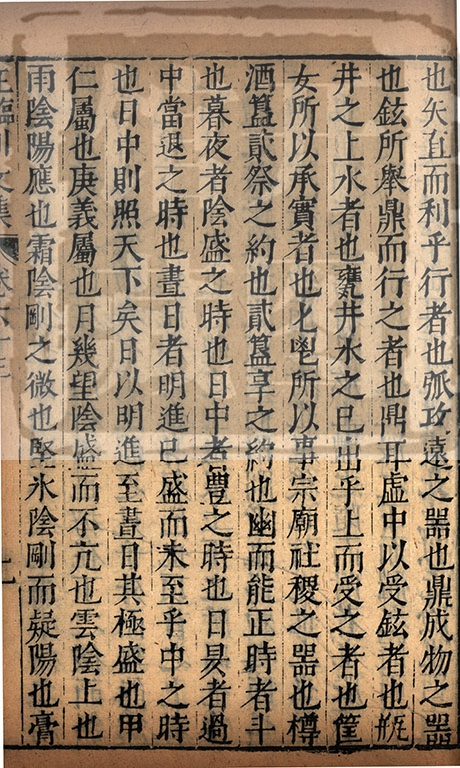 也矢直而利乎行者也弧攻遠之器也鼎成物之器
也鉉所舉鼎而行之者也鼎耳虛中以受鉉者也瓶
井之上水者也甕井水之已出乎上而受之者也筐
女所以承實者也匕鬯所以事宗廟社稷之器也樽
酒簋貳祭之約也貳簋享之約也幽而能正時者斗
也暮夜者陰盛之時也日中者豐之時也日昃者過
中當退之時也晝日者明進已盛而未至乎中之時
也日中則照天下矣日以明進至晝日其極盛也甲
仁屬也庚義屬也月幾望陰盛而不亢也雲陰上也
雨陰陽應也霜陰剛之微也堅氷陰剛而疑陽也膏
王臨川文集